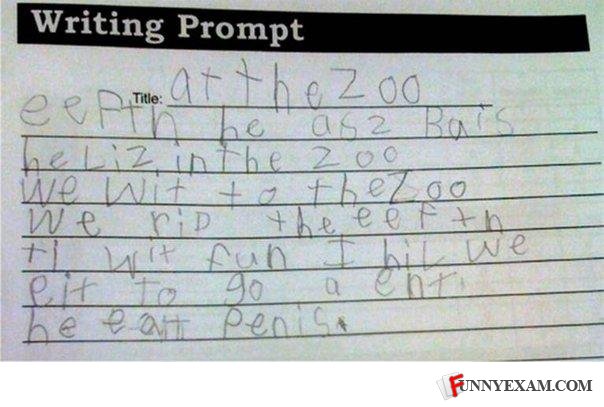 Writing Prompt
Title: at the Zoo
eefth he as2 Bais
he Liz in the zoo
we wit to the Zoo
we rid the eefth
ti wit fun I hiL we
eit to go a ent.
he eatt Penis.
FUNNYEXAM.COM